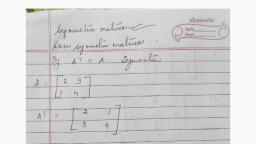 Symmetric matrices
Skew symmetric matrices
If Aᵀ = A Symmetric
A = [2 3
1 4]
Aᵀ = [2 1
3 4]
Date
Page